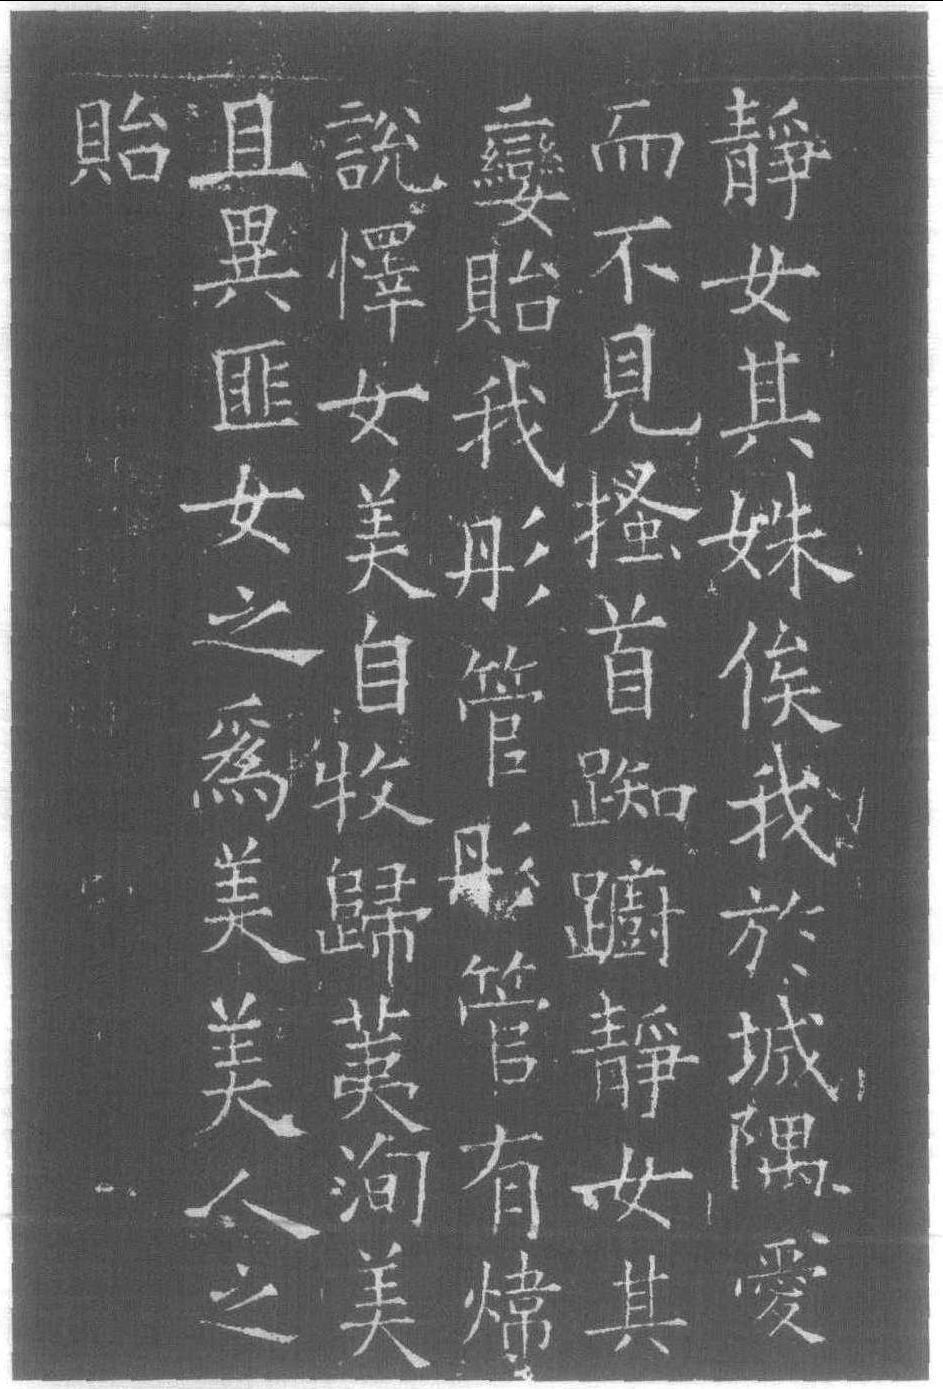 靜女其姝俟我於城隅愛
而不見搔首踟躕靜女其
孌貽我彤管彤管有煒
說懌女美自牧歸荑洵美
且異匪女之爲美美人之
貽